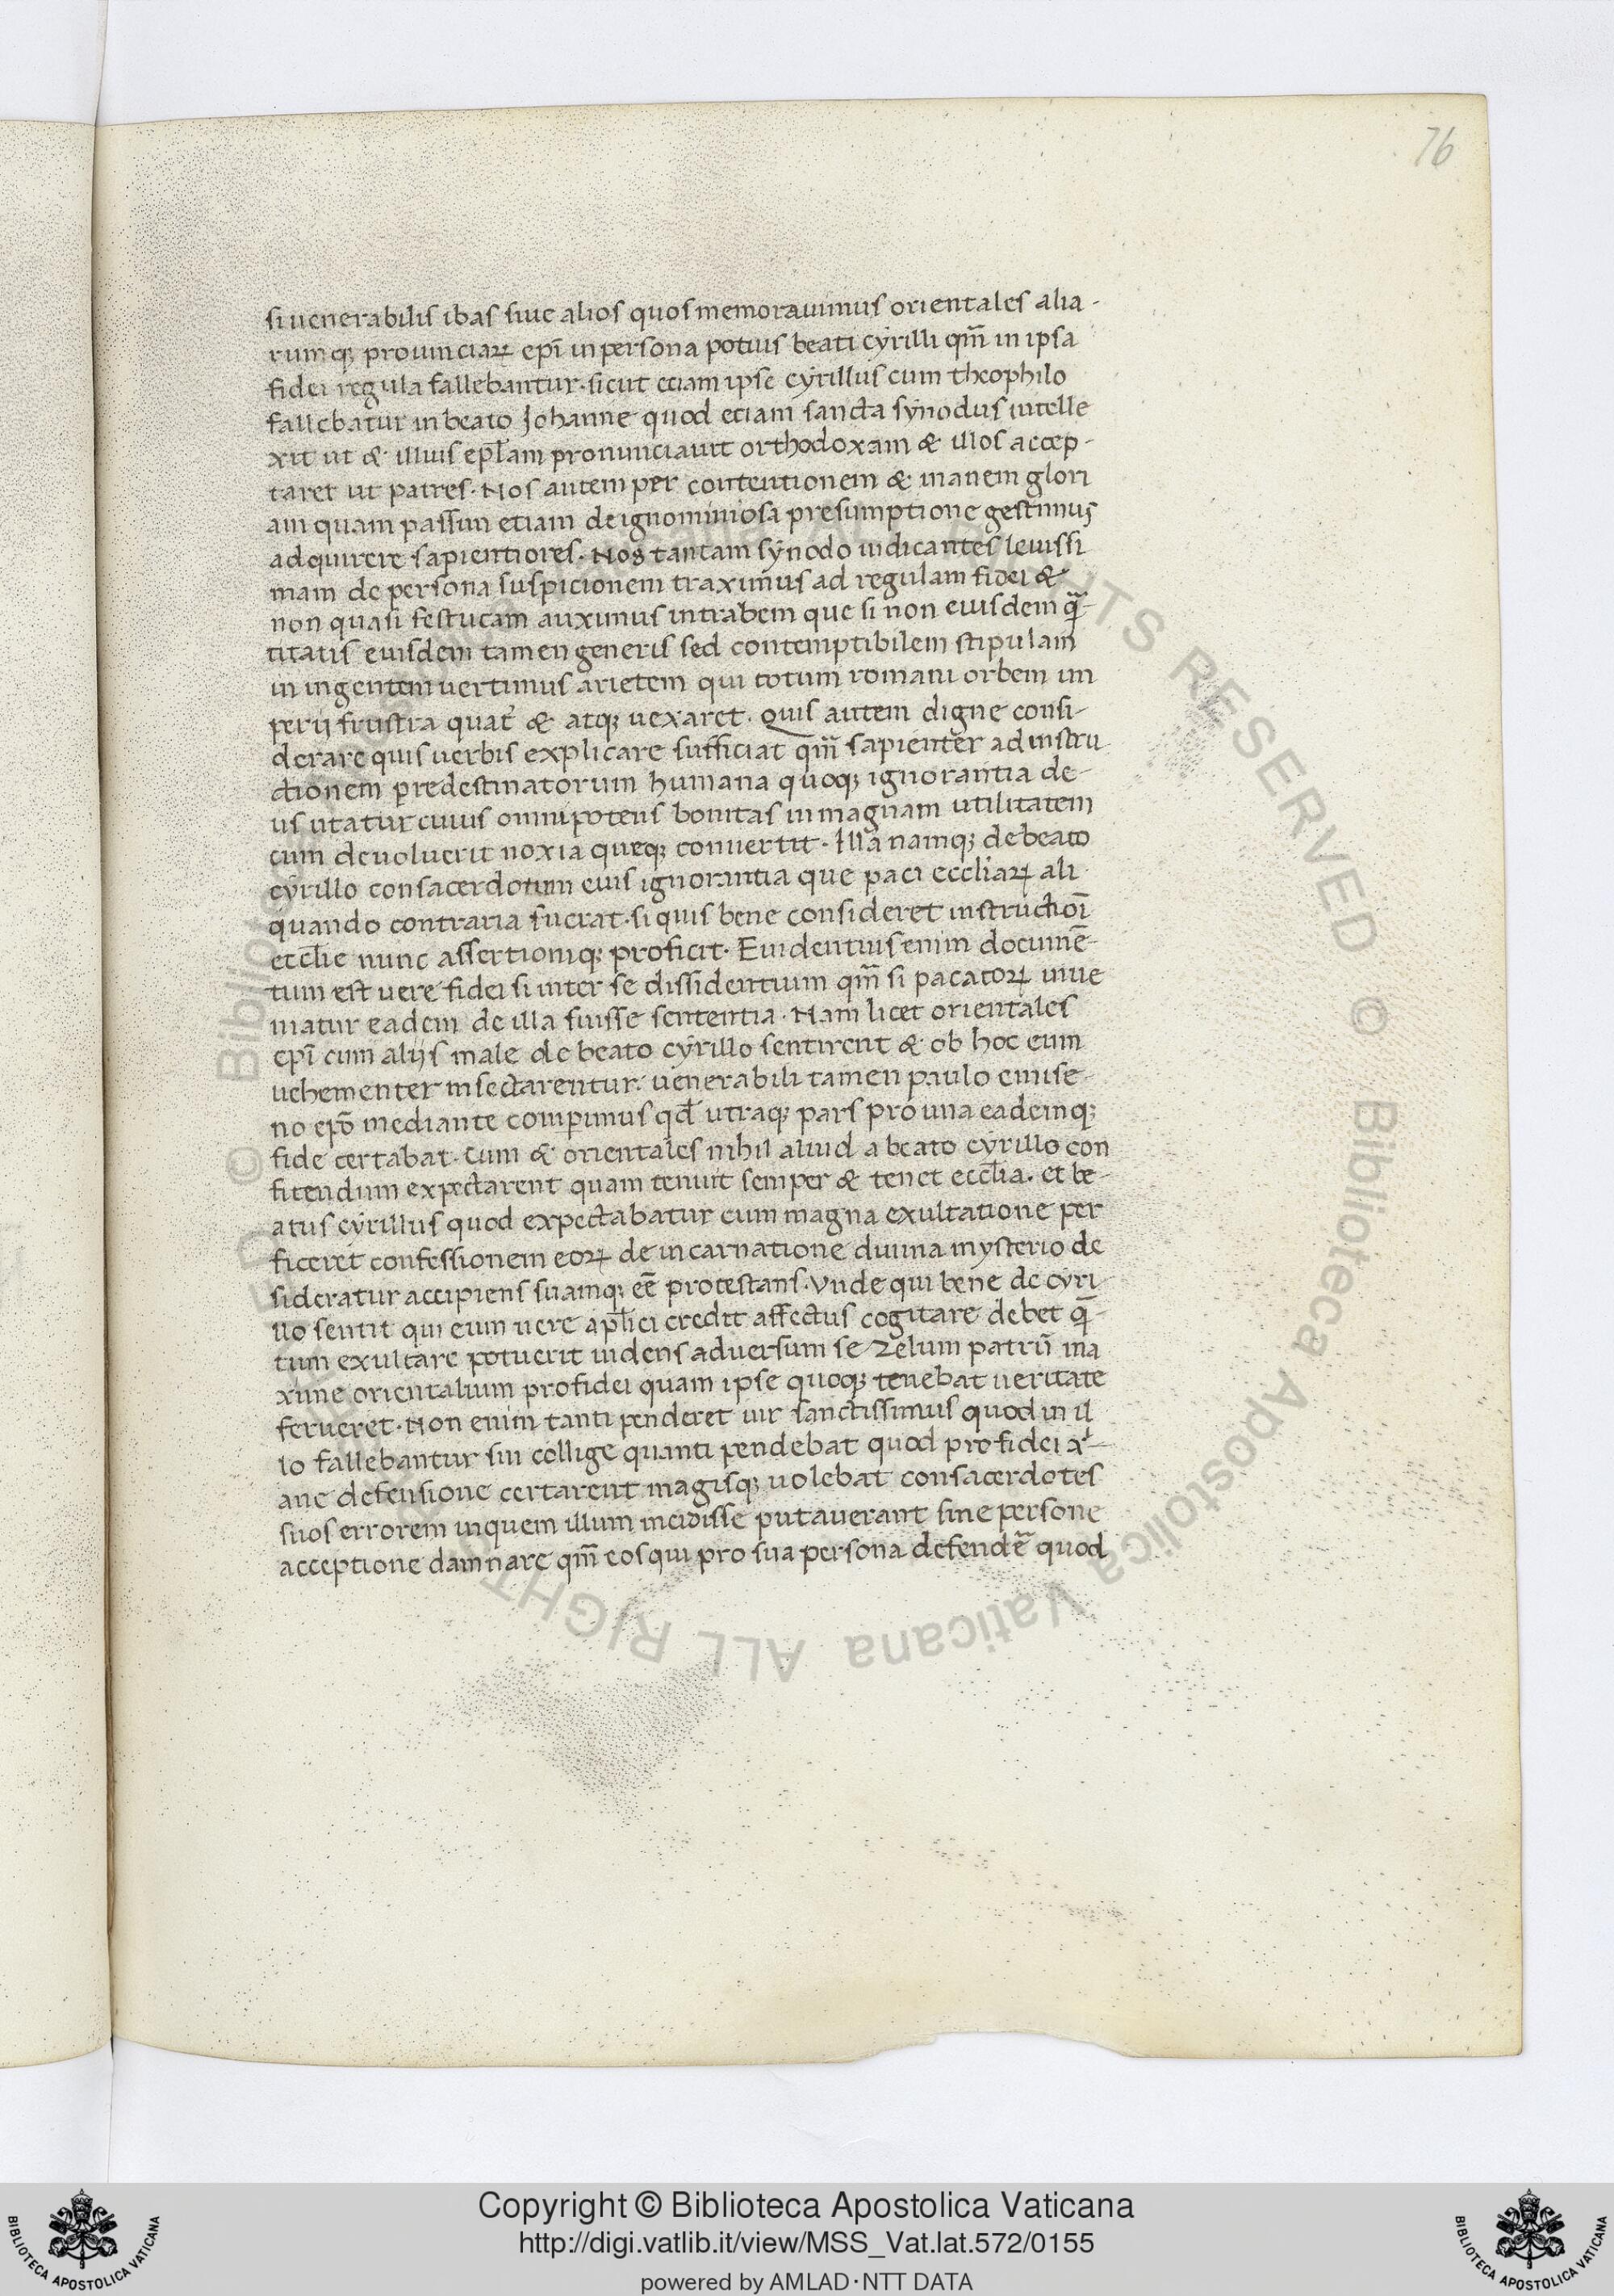 76
si uenerabilis ibas siue alios quos memorauimus orientales alia-
rumqꝫ prouinciaꝝ epī in persona potius beati cyrilli qm̄ in ipsa
fidei regula fallebantur. sicut eciam ipse cyrillus cum theophilo
fallebatur in beato Johanne quod etiam sancta synodus intelle
xit ut & illius epl̄am pronunciauit orthodoxam & illos accep-
taret ut patres. Nos autem per contentionem & inanem glori
am quam passim etiam de ignominiosa presumptione gestimus
adquirere sapientiores. Nos tantam synodo iudicantes leuissi
mam de persona suspicionem traximus ad regulam fidei &
non quasi festucam auximus in trabem que si non eiusdem qͣ̄-
titatis eiusdem tamen generis sed contemptibilem stipulam
in ingentem uertimus arietem qui totum romani orbem im
perij frustra quat᷑ & atqꝫ uexaret. Quis autem digne consi-
derare quis uerbis explicare sufficiat qm̄ sapienter ad instru
ctionem predestinatorum humana quoqꝫ ignorantia de-
us utatur cuius omnipotens bonitas in magnam utilitatem
cum de uoluerit noxia queqꝫ conuertit. Illa namqꝫ de beato
cyrillo consacerdotum eius ignorantia que paci eccliaꝝ ali
quando contraria fuerat. si quis bene consideret instructiōi
eccl̄ie nunc assertioniqꝫ proficit. Euidentius enim documē-
tum est uere fidei si inter se dissidentium qm̄ si pacatoꝝ inue
niatur eadem de illa fuisse sententia. Nam licet orientales
epī cum alijs male de beato cyrillo sentirent & ob hoc eum
uehementer insectarentur. uenerabili tamen paulo emise-
no epō mediante comperimus qd̄ utraqꝫ pars pro una eademqꝫ
fide certabat. cum & orientales nihil aliud a beato cyrillo con
fitendum expectarent quam tenuit semper & tenet eccl̄ia. et be-
atus cyrillus quod expectabatur cum magna exultatione per
ficeret confessionem eoꝝ de incarnatione diuina mysterio de
sideratur accipiens suamqꝫ eē protestans. Vnde qui bene de cyri-
llo sentit qui eum uere apl̄ici credit affectus cogitare debet qͣ̄-
tum exultare potuerit uidens aduersum se zelum patrū ma
xime orientalium pro fidei quam ipse quoqꝫ tenebat ueritate
ferueret. Non enim tanti penderet uir sanctissimus quod in il
lo fallebantur sin collige quanti pendebat quod pro fidei xͥ-
ane defensione certarent magisqꝫ uolebat consacerdotes
suos errorem in quem illum incidisse putauerant sine persone
acceptione damnare qm̄ eos qui pro sua persona defendē quod
Copyright © Biblioteca Apostolica Vaticana
http://digi.vatlib.it/view/MSS_Vat.lat.572/0155
powered by AMLAD·NTT DATA
BIBLIOTECA APOSTOLICA VATICANA
BIBLIOTECA APOSTOLICA VATICANA
© Biblioteca Apostolica Vaticana ALL RIGHTS RESERVED